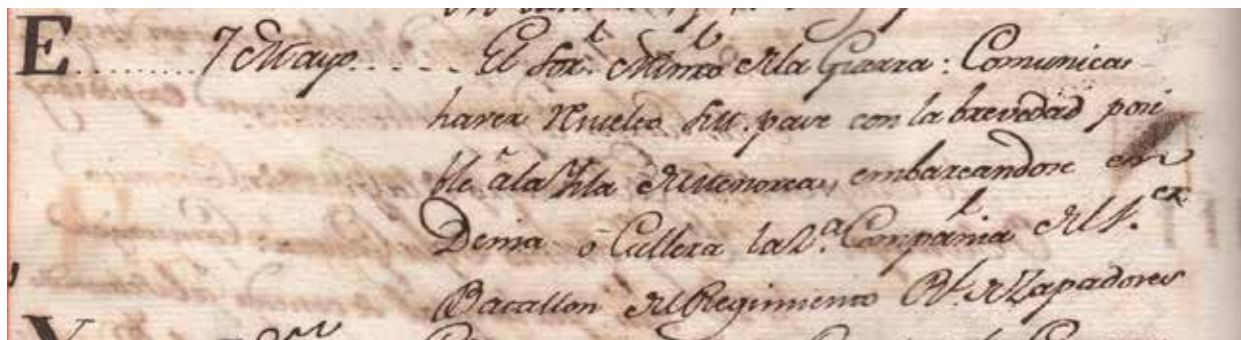 E........7 Mayo..... El Sor. Minro de la Guerra: Comunica
haver resuelto S.M. pase con la brevedad posi
ble a la Isla de Menorca, embarcandose en
Denia o Cullera la 2ª Compañia del 1.er
Batallon del Regimiento Rl. de Zapadores